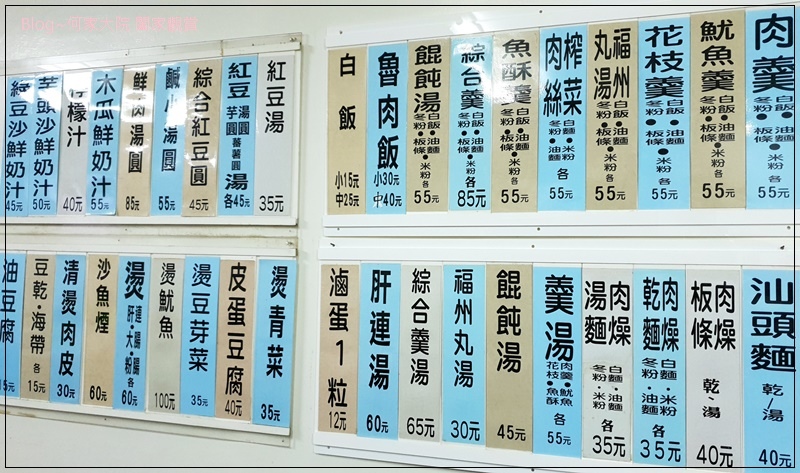 肉羹 白飯•白麵•油麵•冬粉•板條•米粉 各55元
魷魚羹 白飯•白麵•油麵•冬粉•板條•米粉 各55元
花枝羹 白飯•白麵•油麵•冬粉•板條•米粉 各55元
福州丸湯 白飯•白麵•油麵•冬粉•板條•米粉 各55元
榨菜肉絲 白麵•油麵•冬粉•板條•米粉 各55元
魚酥羹 白飯•白麵•油麵•冬粉•板條•米粉 各55元
綜合羹 白飯•白麵•油麵•冬粉•板條•米粉 各85元
餛飩湯 白飯•白麵•油麵•冬粉•板條•米粉 各55元
魯肉飯 小30元 中40元
白飯 小15元 中25元
紅豆湯 35元
紅豆 湯圓 芋圓 蕃薯圓 湯 各45元
綜合紅豆圓 45元
鹹小湯圓 55元
鮮肉湯圓 85元
木瓜鮮奶汁 55元
檸檬汁 40元
芋頭沙鮮奶汁 50元
綠豆沙鮮奶汁 45元
汕頭麵 乾/湯 40元
肉燥板條 乾、湯 40元
肉燥乾麵 白麵•米粉 冬粉•油麵 各35元
肉燥湯麵 白麵•油麵 冬粉•米粉 各35元
羹湯 肉羹•魷魚 花枝•魚酥 各55元
餛飩湯 45元
福州丸湯 30元
綜合羹湯 65元
肝連湯 60元
滷蛋1粒 12元
燙青菜 35元
皮蛋豆腐 40元
燙豆芽菜 35元
燙魷魚 100元
燙 肝連•大腸•粉腸 各60元
沙魚煙 60元
清燙肉皮 30元
豆乾•海帶 各15元
油豆腐 15元